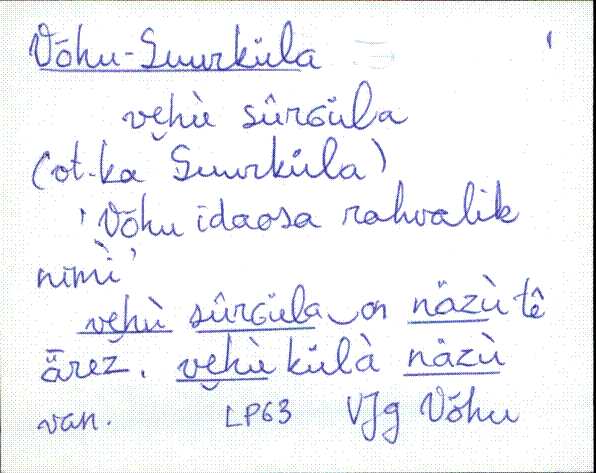 Võhu-Suurküla
ve̮hù sûrGüla
(ot. ka Suurküla)
'Võhu idaosa rahvalik
nimi'
ve̮hù sûrGüla‿on näzù tê
ärez. ve̮hù külà näzù
van. LP63 VJg Võhu